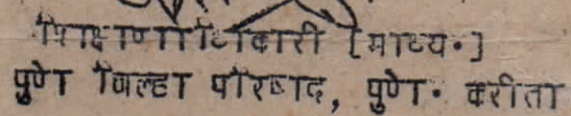 शिक्षणाधिकारी [माध्य.]
पुणे जिल्हा परिषद, पुणे. करीता